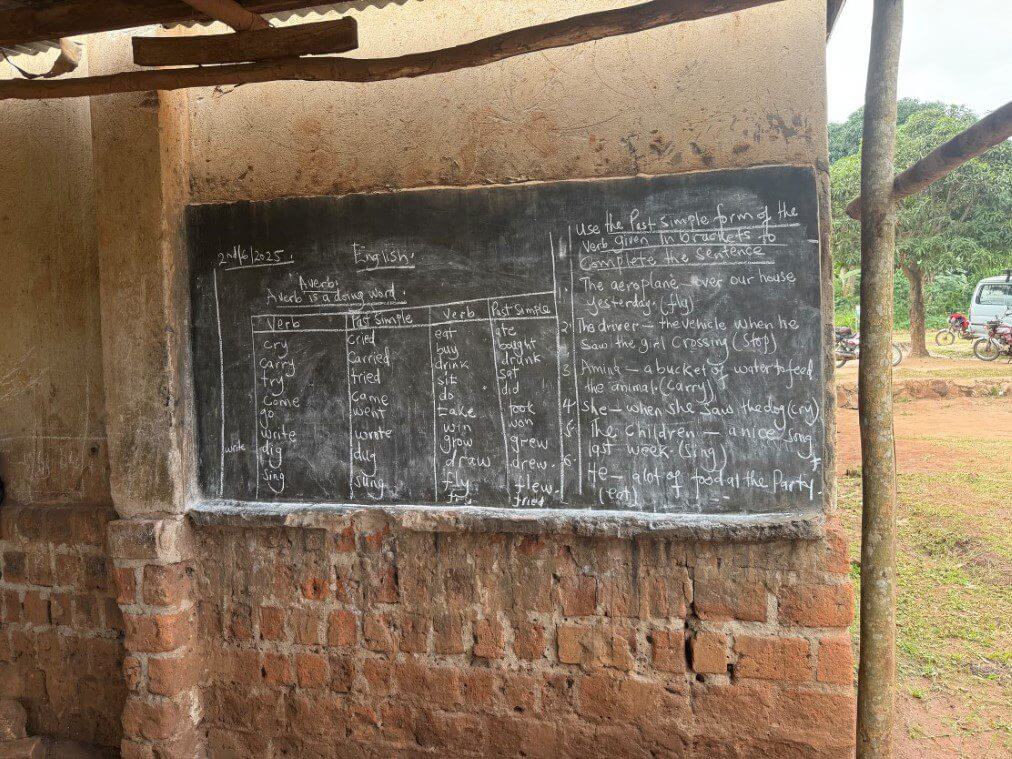 2nd/6/2025.
English.
A verb:
A verb is a doing word.
Verb Past simple Verb Past simple
cry cried eat ate
carry carried buy bought
try tried drink drunk
come came sit sat
go went do did
write wrote take took
dig dug win won
sing sung grow grew
draw drew.
fly flew.
fry fried
write
Use the Past simple form of the
verb given in brackets to
complete the sentence
1. The aeroplane — over our house
yesterday. (fly)
2. The driver — the vehicle when he
saw the girl crossing (stop)
3. Amina — a bucket of water to feed
the animal. (carry)
4. She — when she saw the dog (cry)
5. The children — a nice song
last week. (sing)
6. He — a lot of food at the party.
(eat)